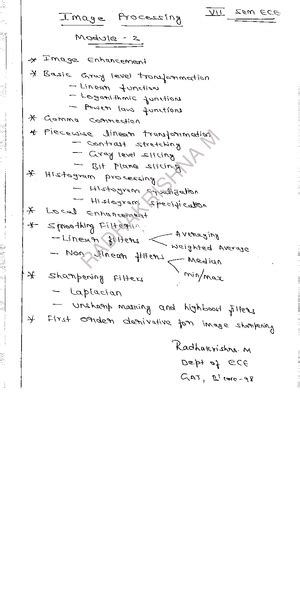 Image Processing
VII Sem ECE
Module - 2
* Image Enhancement
* Basic Gray level transformation
— Linear function
— Logarithmic functions
— Power law functions
* Gamma correction
* Piecewise linear transformation
— Contrast stretching
— Gray level slicing
— Bit plane slicing
* Histogram processing
— Histogram equalization
— Histogram specification
* Local enhancement
* Smoothing Filters
— Linear filters
Averaging
weighted Average
— Non linear filters
Median
min/max
* Sharpening filters
— Laplacian
— Unsharp masking and highboost filters
* First order derivative for image sharpening
Radhakrishna M
Dept of ECE
RADHAKRISHNA M